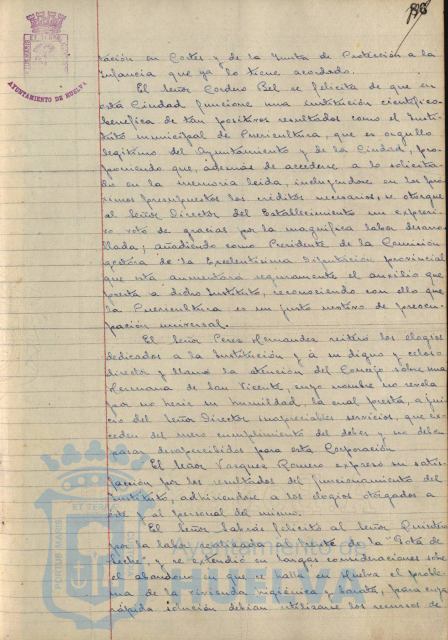 186
AYUNTAMIENTO DE HUELVA
ración en Cortes y de la Junta de Protección a la
Infancia que ya lo tiene acordado.
El Señor Cordero Bel se felicita de que en
esta Ciudad funcione una institución científico-
benéfica de tan positivos resultados como el Insti-
tuto municipal de Puericultura, que es orgullo
legítimo del Ayuntamiento y de la Ciudad, pro-
poniendo que, además de accederse a lo solicita-
do en la memoria leída, incluyéndose en los pró-
ximos presupuestos los créditos necesarios, se otorgue
al Señor Director del Establecimiento un expresi-
vo voto de gracias por la magnífica labor desarro-
llada; añadiendo como Presidente de la Comisión
gestora de la Excelentísima Diputación provincial
que esta aumentará seguramente el auxilio que
presta a dicho Instituto, reconociendo con ello que
la Puericultura es un justo motivo de preocu-
pación universal.
El Señor Peres Hernandez reiteró los elogios
dedicados a la Institución y á su digno y celoso
director y llamó la atención del Concejo sobre una
Hermana de San Vicente, cuyo nombre no revela
por no herir su humildad, la cual presta, a jui-
cio del Señor Director inapreciables servicios, que ex-
ceden del mero cumplimiento del deber y no deben
pasar desapercibidos para esta Corporación
El Señor Vazquez Romero expresó su satis-
facción por los resultados del funcionamiento del
Instituto, adhiriéndose a los elogios otorgados a
éste y al personal del mismo.
El Señor felicitó al Señor
por la labor realizada al frente de la "Gota de
leche", y se extendió en largas consideraciones sobre
el abandono en que se halla en Huelva el proble-
ma de la vivienda higiénica y barata, para cuya
rápida solución debían utilizarse los recursos de